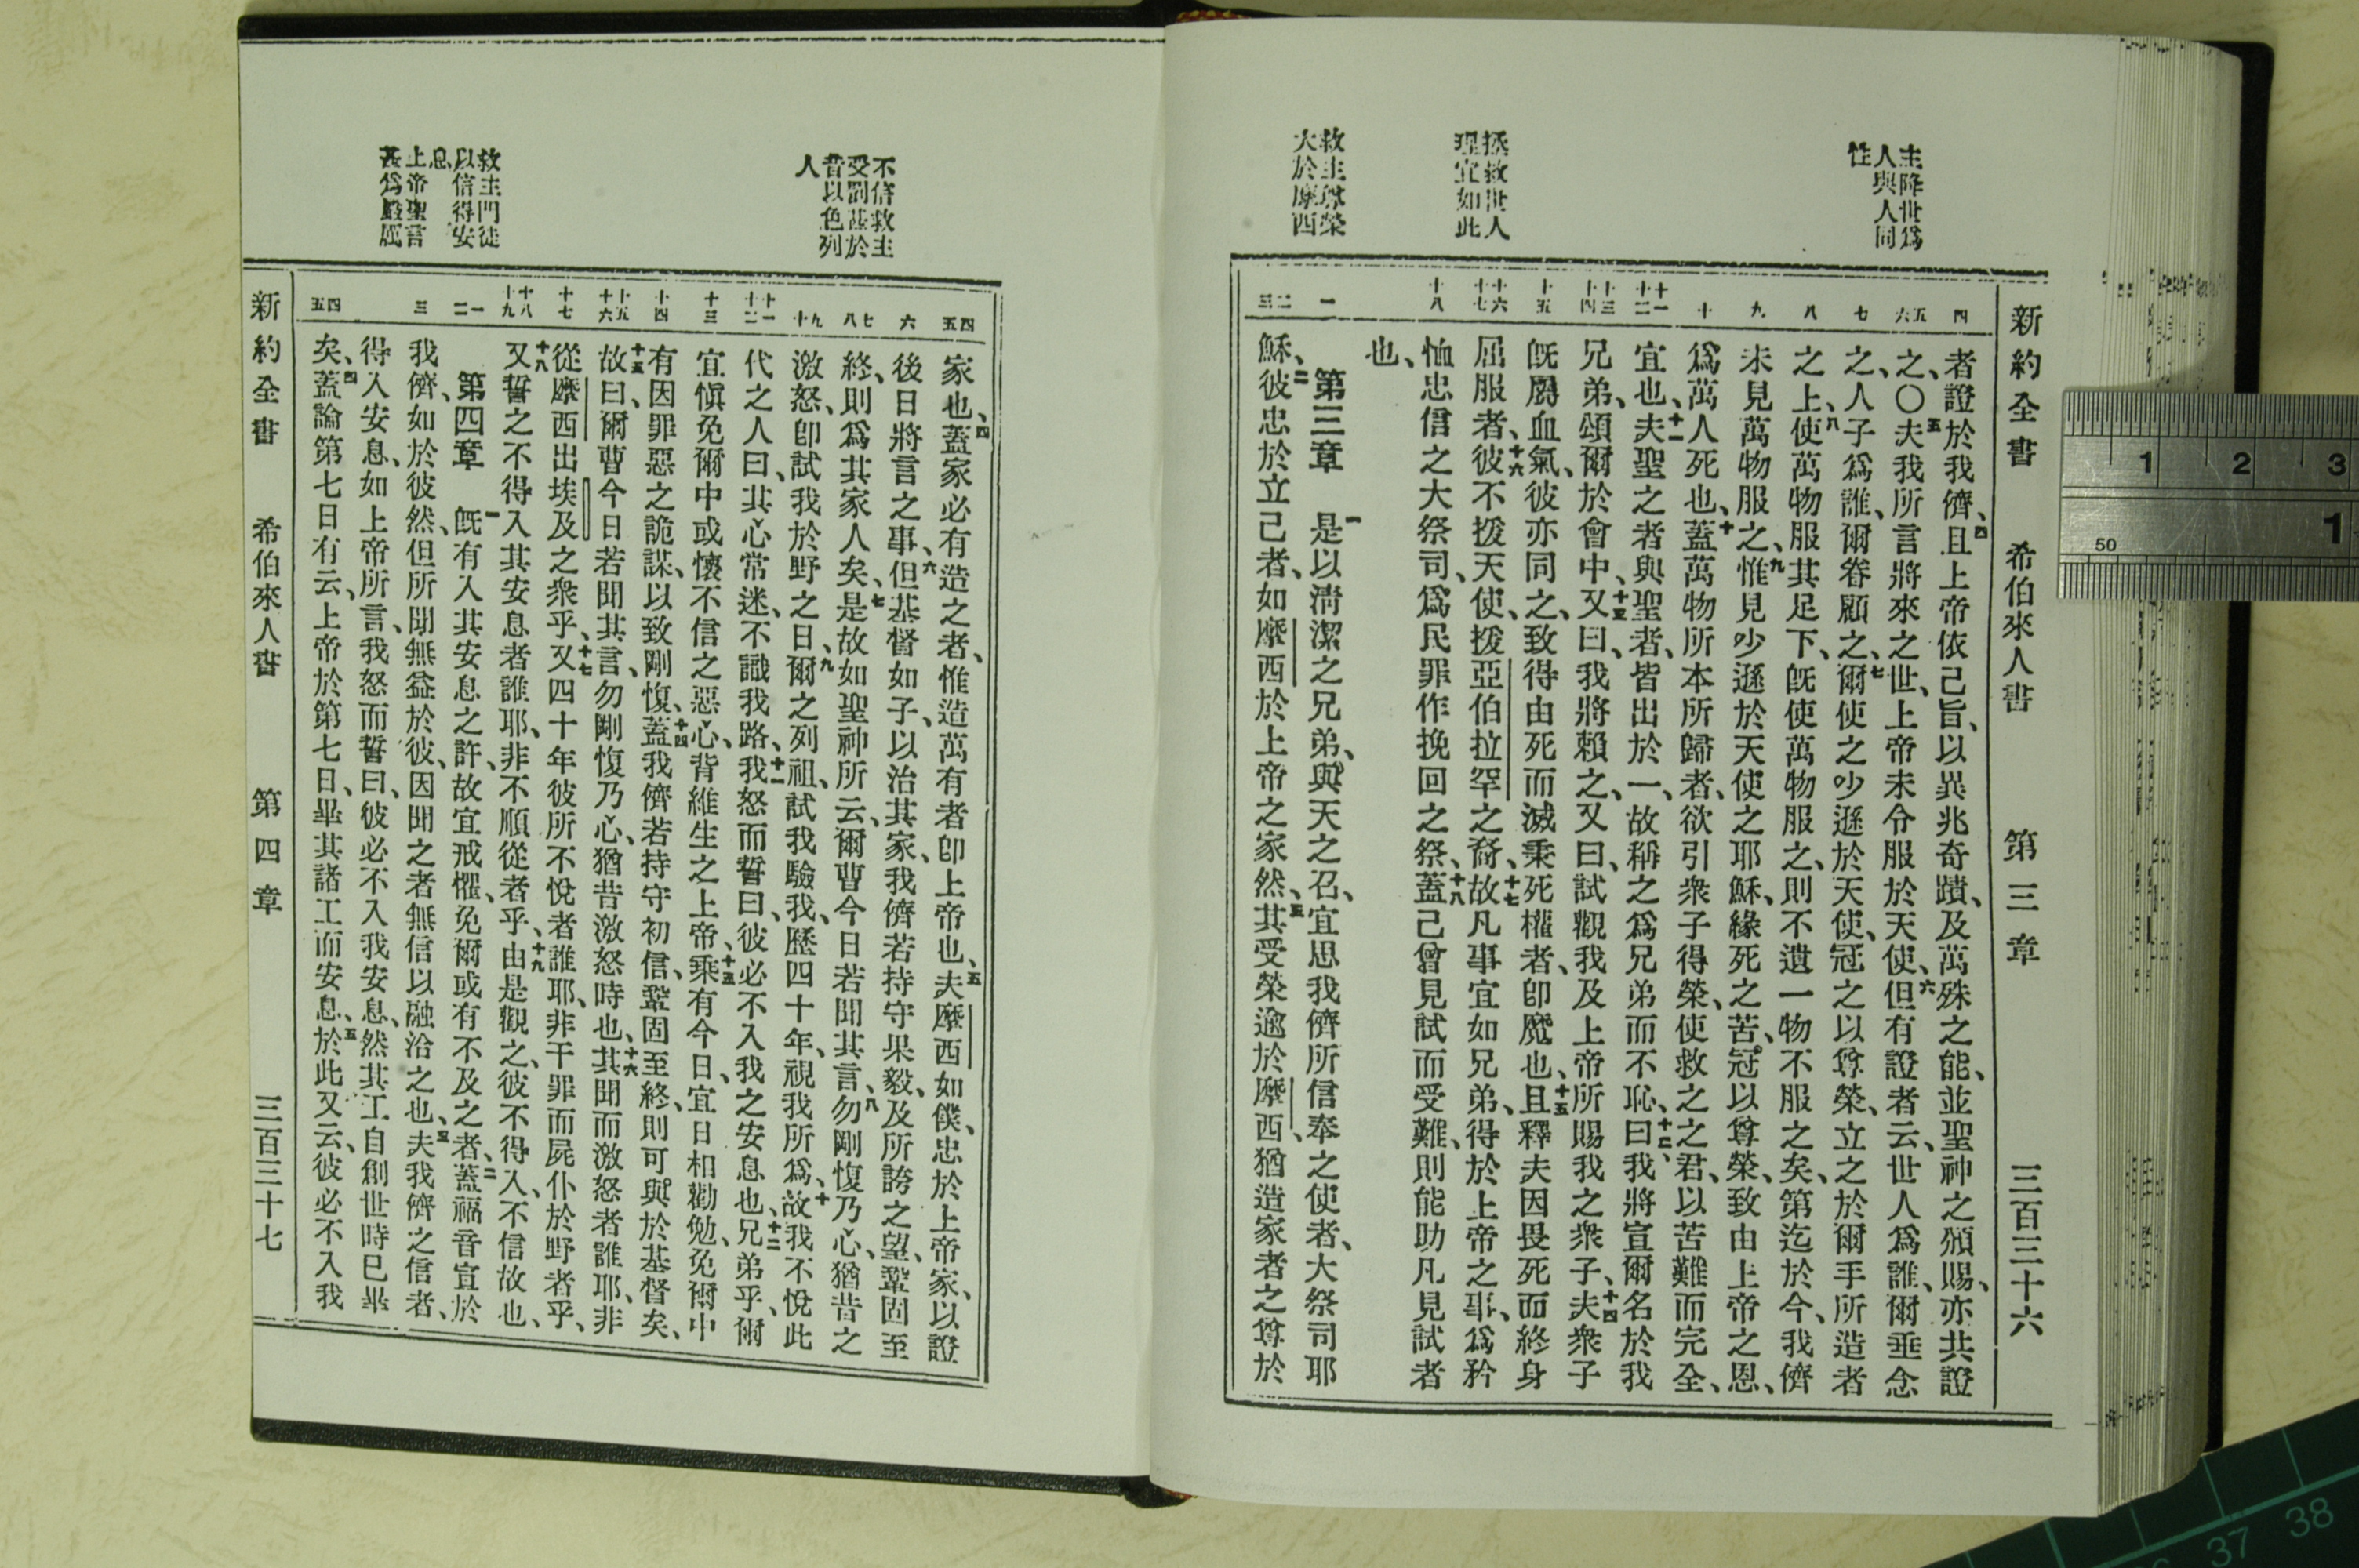 新約全書 希伯來人書 第三章 三百三十六
主降世爲
人與人同
性
拯救世人
理宜如此
救主尊榮
大於摩西
四
五
六
七
八
九
十
十一
十二
十三
十四
十五
十六
十七
十八
一
二
三
者證於我儕、四且上帝依己旨、以異兆奇蹟、及萬殊之能、並聖神之頒賜、亦共證
之、〇五夫我所言將來之世、上帝未令服於天使、六但有證者云、世人爲誰、爾垂念
之、人子爲誰、爾眷顧之、七爾使之吵遜於天使、冠之以尊榮、立之於爾手所造者
之上、八使萬物服其足下、旣使萬物服之、則不遺一物不服之矣、第迄於今、我儕
未見萬物服之、九惟見吵遜於天使之耶穌、緣死之苦、冠以尊榮、致由上帝之恩、
爲萬人死也、十蓋萬物所本所歸者、欲引衆子得榮、使救之之君、以苦難而完全、
宜也、十一夫聖之者與聖者、皆出於一、故稱之爲兄弟而不恥、十二曰、我將宣爾名於我
兄弟、頌爾於會中、十三又曰、我將賴之、又曰、試觀我及上帝所賜我之衆子、十四夫衆子
旣屬血氣、彼亦同之、致得由死而滅秉死權者、卽魔也、十五且釋夫因畏死而終身
屈服者、十六彼不援天使、援亞伯拉罕之裔、十七故凡事宜如兄弟、得於上帝之事、爲矜
恤忠信之大祭司、爲民罪作挽回之祭、十八蓋己曾見試而受難、則能助凡見試者
也、
第三章 一是以淸潔之兄弟、與天之召、宜思我儕所信奉之使者、大祭司耶
穌、二彼忠於立己者、如摩西於上帝之家然、三其受榮逾於摩西、猶造家者之尊於
不信救主
受罰甚於
昔以色列
人
救主門徒
以信得安
息
上帝聖言
甚爲嚴厲
四
五
六
七
八
九
十
十一
十二
十三
十四
十五
十六
十七
十八
十九
一
二
三
四
五
家也、四蓋家必有造之者、惟造萬有者卽上帝也、五夫摩西如僕、忠於上帝家、以證
後日將言之事、六但基督如子、以治其家、我儕若持守果毅、及所誇之望、鞏固至
終、則爲其家人矣、七是故如聖神所云、爾曹今日若聞其言、八勿剛愎乃心、猶昔之
激怒、卽試我於野之日、九爾之列祖、試我驗我、歷四十年、視我所爲、十故我不悅此
代之人曰、其心常迷、不識我路、十一我怒而誓曰、彼必不入我之安息也、十二兄弟乎、爾
宜愼免爾中或懷不信之惡心、背維生之上帝、十三乘有今日、宜日相勸勉、免爾中
有因罪惡之詭謀、以致剛愎、十四蓋我儕若持守初信、鞏固至終、則可與於基督矣、
十五故曰、爾曹今日若聞其言、勿剛愎乃心、猶昔激怒時也、十六其聞而激怒者誰耶、非
從摩西出埃及之衆乎、十七又四十年彼所不悅者誰耶、非干罪而屍仆於野者乎、
十八又誓之不得入其安息者誰耶、非不順從者乎、十九由是觀之、彼不得入、不信故也、
第四章 一旣有入其安息之許、故宜戒懼、免爾或有不及之者、二蓋福音宣於
我儕、如於彼然、但所聞無益於彼、因聞之者無信以融洽之也、三夫我儕之信者、
得入安息、如上帝所言、我怒而誓曰、彼必不入我安息、然其工自創世時已畢
矣、四蓋論第七日有云、上帝於第七日、畢其諸工而安息、五於此又云、彼必不入我
新約全書 希伯來人書 第四章 三百三十七
1 2 3
50
1
37 38